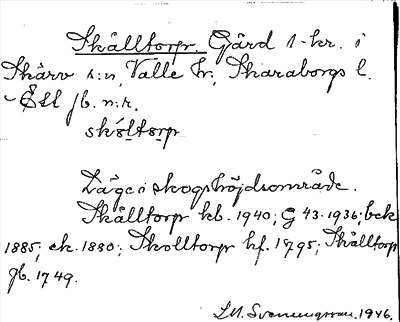 Skålltorp Gård 1-kr. i
Skärv s:n, Valle hr, Skaraborgs l.
Ett jb. n:r.
skóltorp
Läge i skogshöjdsområde.
Skålltorp kb. 1940; G 43. 1936; bek
1885; ek. 1880; Skolltorp hf. 1795; Skålltorp
jb. 1749.
1946.